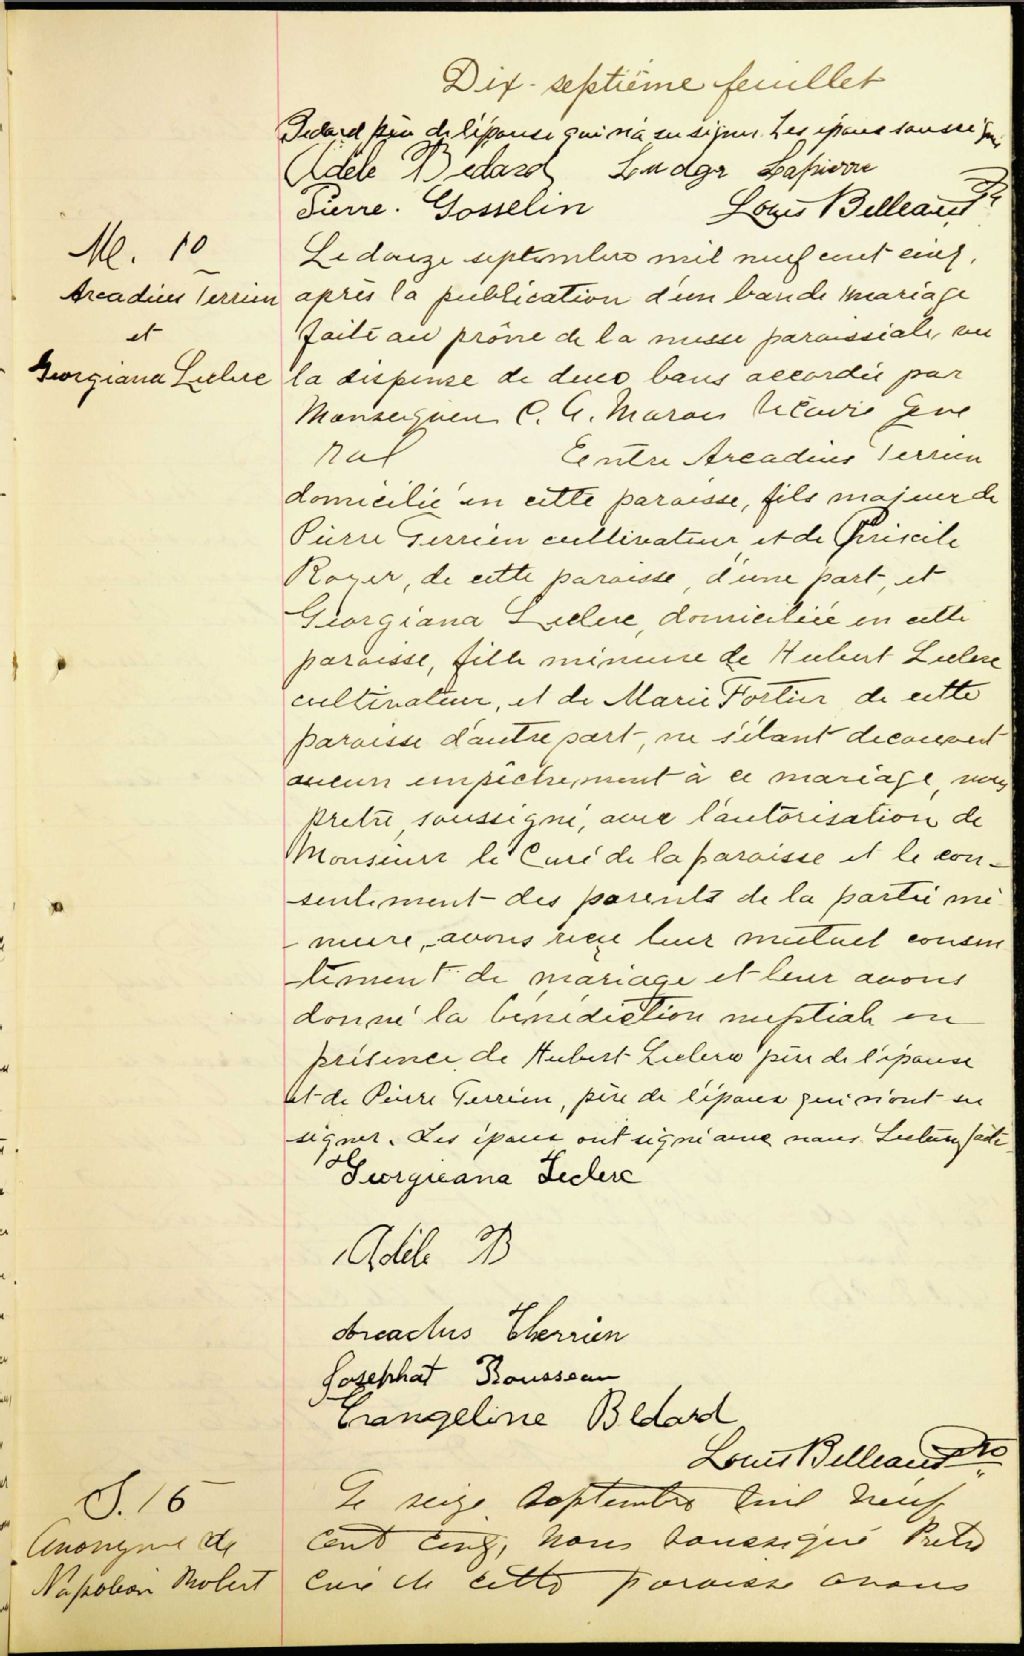 Dix-septième feuillet
Bedard père de l'épouse qui n'a su signer. Les époux
Adèle Bedard Ludgr Lapierre
Pierre. Gosselin Louis Belleau Ptr
M. 10
Arcadius Terrien
et
Georgiana Leclerc
Le douze septembre mil neuf cent cinq,
après la publication d'un ban de mariage
faite au prône de la messe paroissiale, vu
la dispense de deux bans accordée par
Monseigneur C. A. Marois Vicaire Géné
ral Entre Arcadius Terrien
domicilié en cette paroisse, fils majeur de
Pierre Terrien cultivateur et de Priscile
Royer, de cette paroisse, d'une part, et
Georgiana Leclerc, domiciliée en cette
paroisse, fille mineure de Hubert Leclerc
cultivateur, et de Marie Fortier de cette
paroisse d'autre part, ne s'étant decouvert
aucun empêchement à ce mariage, nous
pretre, soussigné, avec l'autorisation de
Monsieur le Curé de la paroisse et le con-
sentement des parents de la partie mi
-neure, avons reçu leur mutuel consen
tement de mariage et leur avons
donné la bénédiction nuptiale en
présence de Hubert Leclerc père de l'épouse
et de Pierre Terrien, père de l'époux qui n'ont su
signer. Les époux ont signé avec nous. Lecture faite
Georgieana Leclerc
Adèle B
Arcadus Therrien
Josephat Rousseau
Evangeline Bedard
Louis Belleau Ptr
S. 16
Anonyme de
Napoléon Nolert
Le seize Septembre mil neuf
cent cinq, nous soussigné Pretre
curé de cette paroisse avons